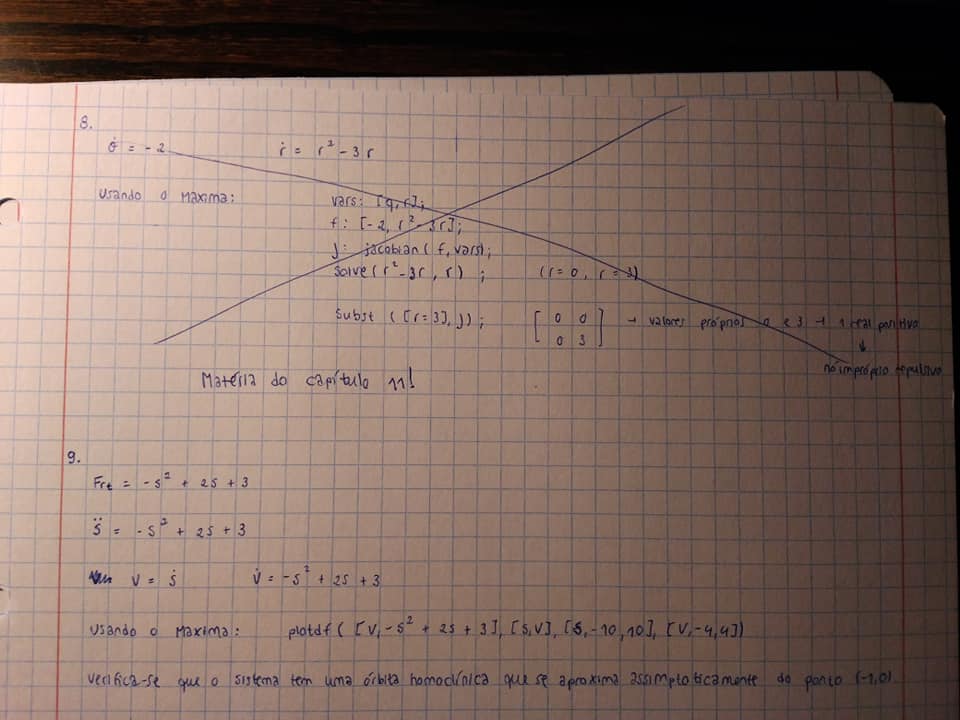 8.
θ̇ = -2 ṙ = r² - 3r
Usando o Maxima: vars: [q,r];
f: [-2, r² - 3r];
j: jacobian(f, vars);
solve(r² - 3r, r) ; (r = 0, r = 3)
subst ([r=3], j) ; [0 0
0 3] → valores próprios 0 e 3 → 1 real positivo
↓
nó impróprio repulsivo
Matéria do capítulo 11!
9.
Fre = -s² + 2s + 3
s̈ = -s² + 2s + 3
v = ṡ v̇ = -s² + 2s + 3
Usando o Maxima: plotdf ( [v, -s² + 2s + 3], [s,v], [s, -10, 10], [v, -4, 4])
verifica-se que o sistema tem uma órbita homoclínica que se aproxima assimptoticamente do ponto (-1,0)